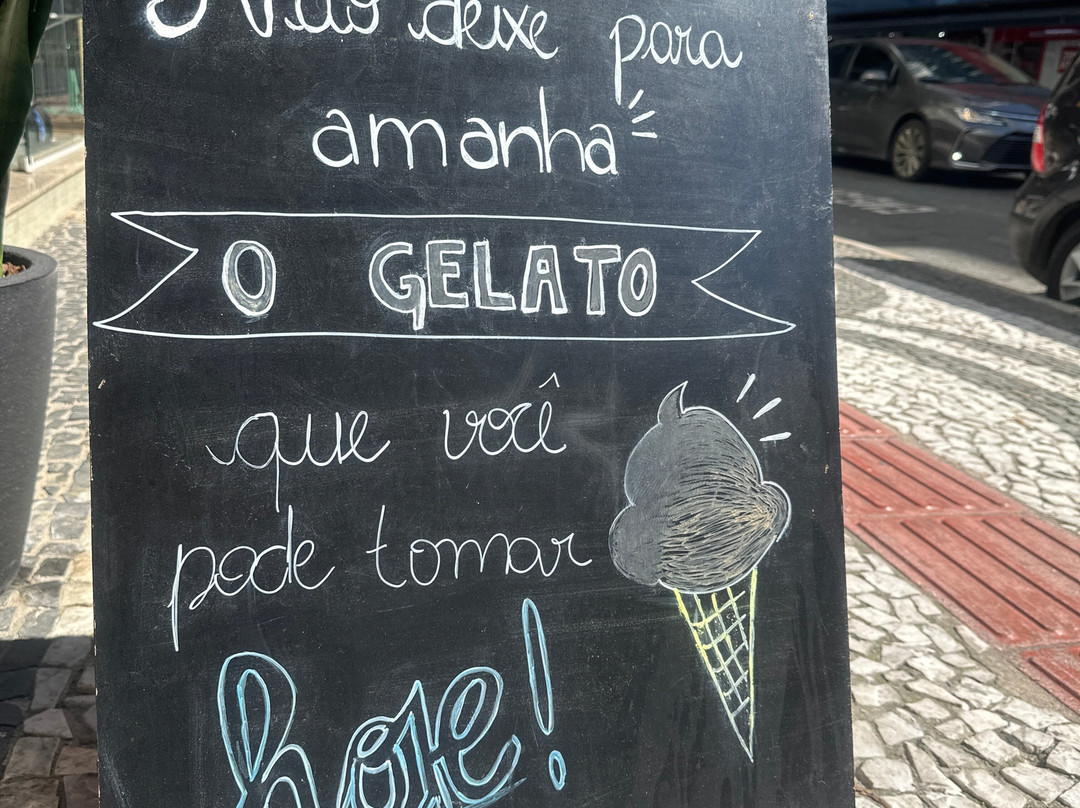 Não deixe para
amanha
O GELATO
que você
pode tomar
hoje!